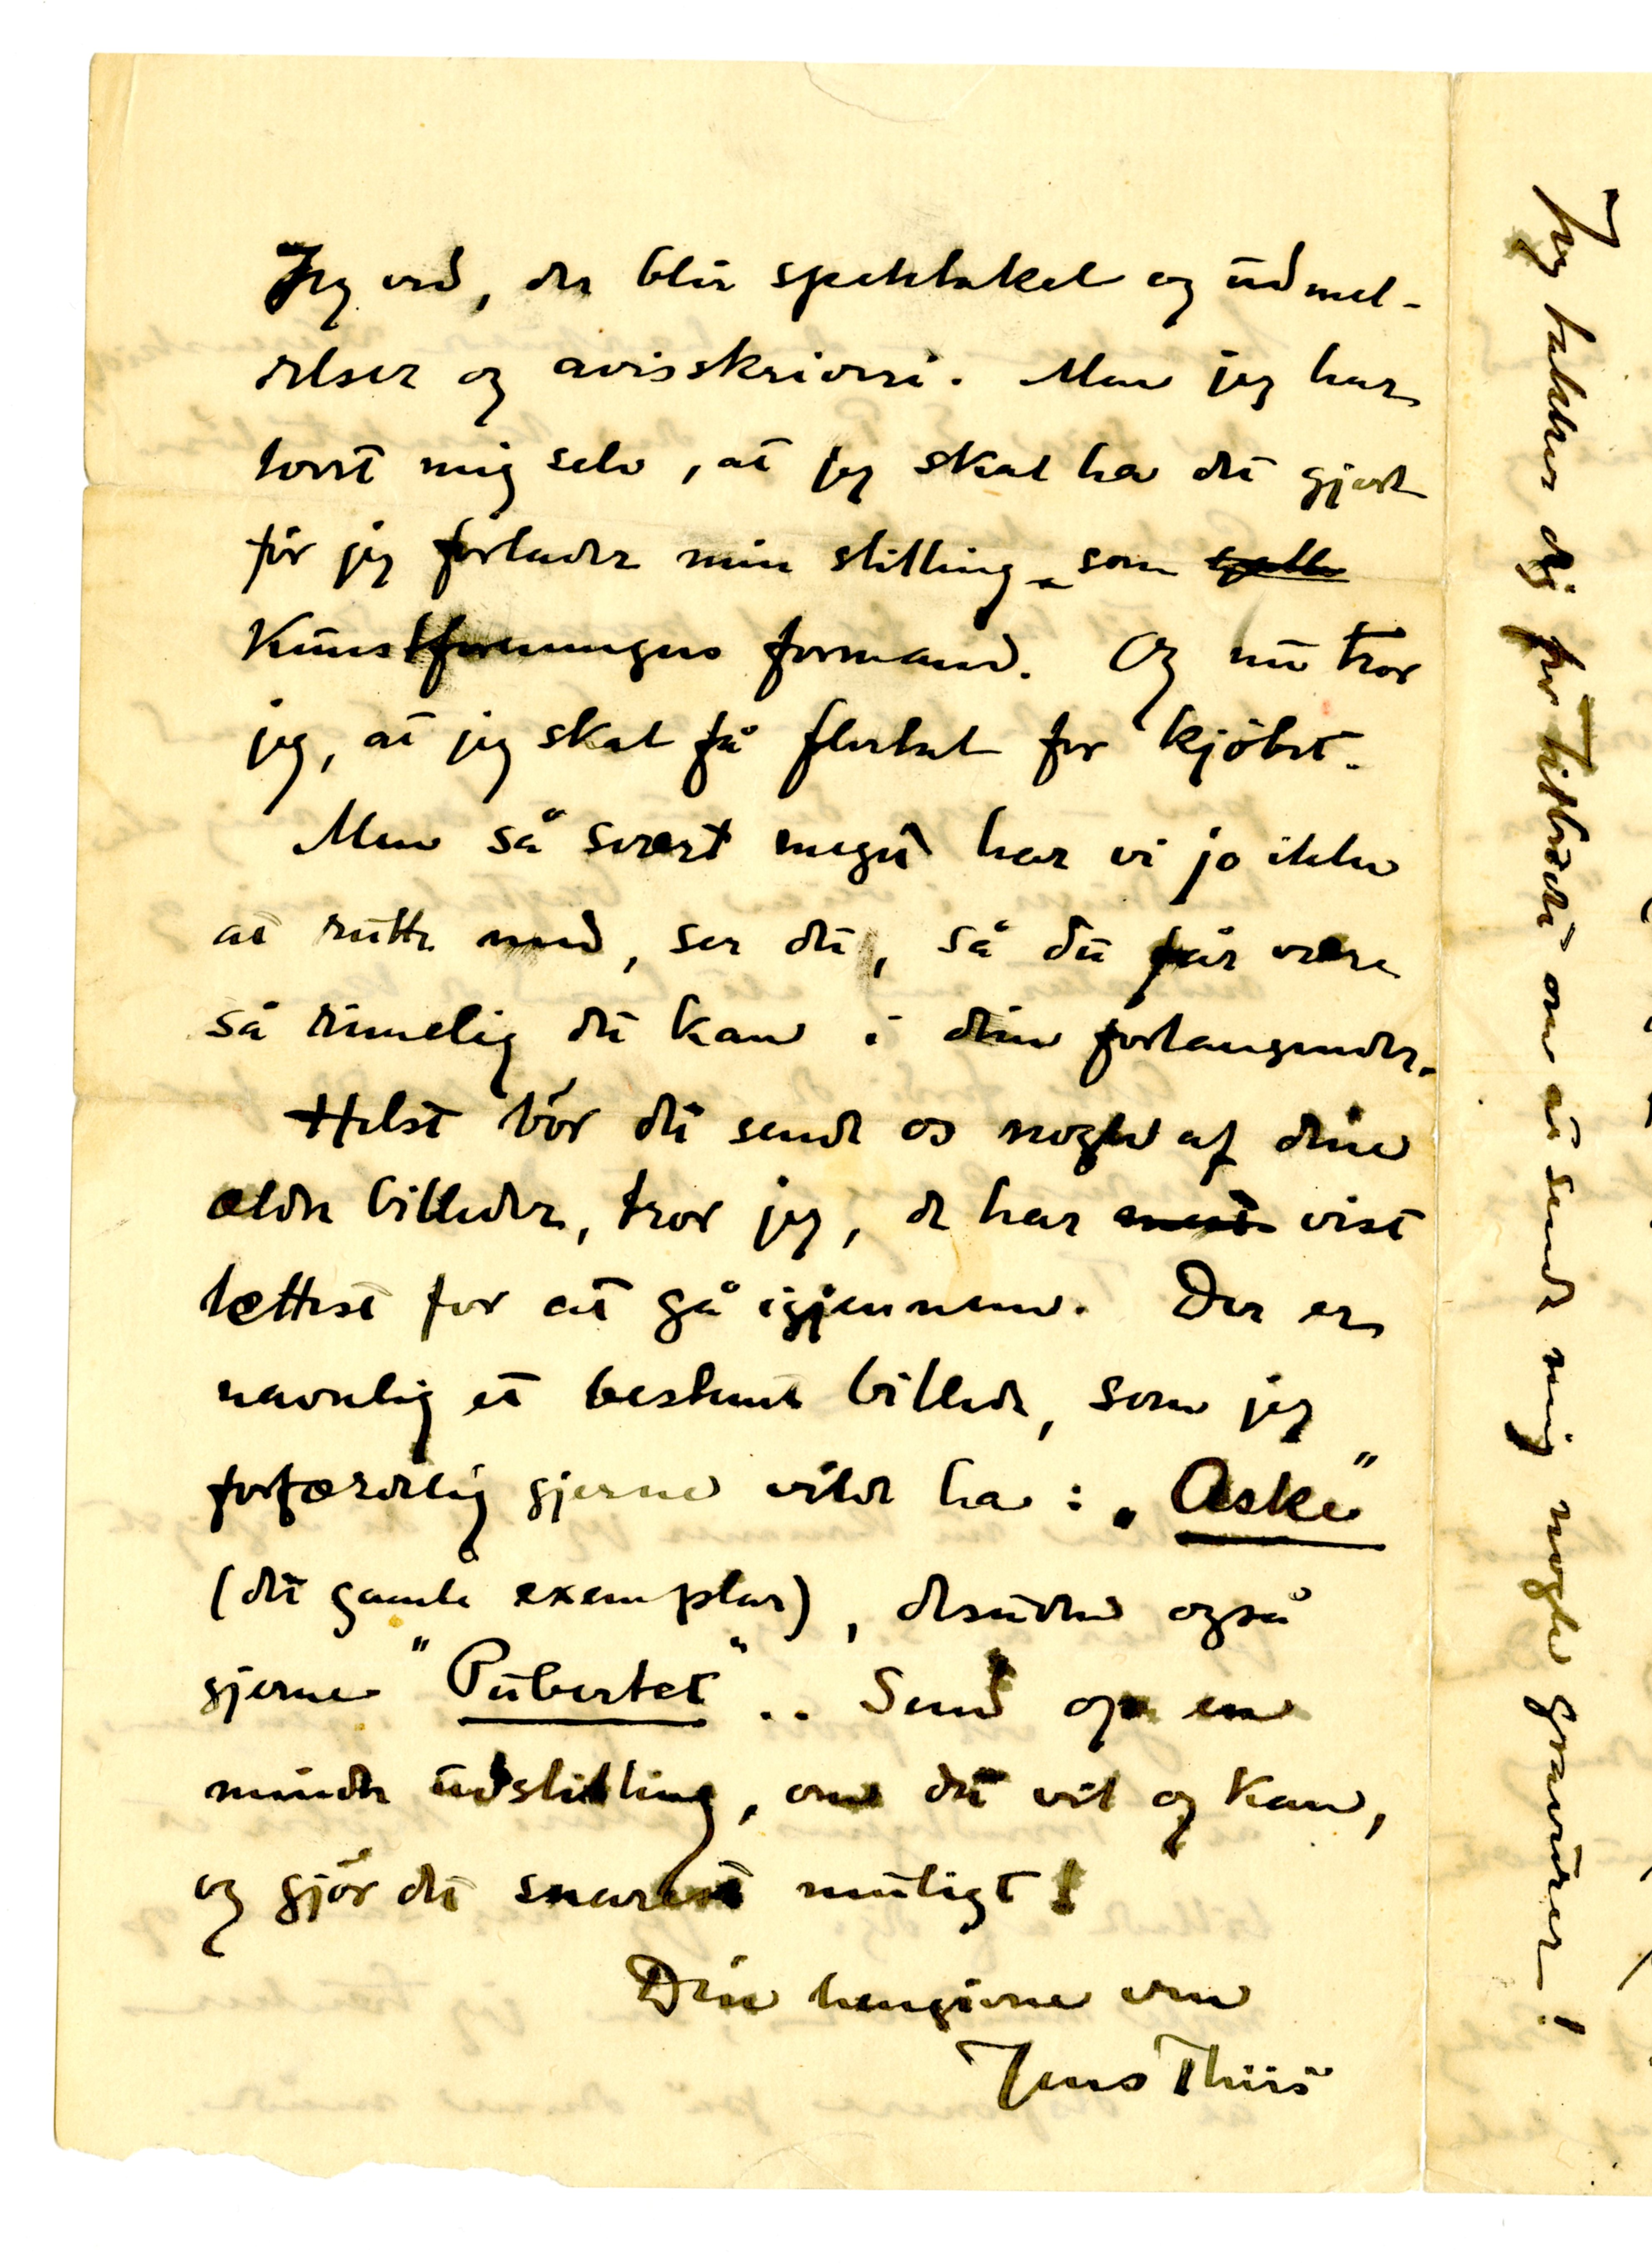 Jeg ved, der blir spektakel og udmel-
delser og avisskriveri. Men jeg har
lovet mig selv, at jeg skal ha det gjort
før jeg forlader min stilling som
Kunstforeningens formand. Og nu tror
jeg, at jeg skal få flertal for kjöbet.
Men så svært meget har vi jo ikke
at rutte med, ser du, så du får være
så rimelig du kan i dine forlangender.
Helst bör du sende os nogle af dine
ældre billeder, tror jeg, de har mest vist
lettest for at gå igjennem. Der er
navnlig et bestemt billede, som jeg
forfærdelig gjerne vilde ha: „Aske"
(det gamle exemplar), desuden også
gjerne "Pubertet".. Send op en
mindre udstilling, om du vil og kan,
og gjör det snarest muligt!
Din hengivne ven
Jens Thiis
Jeg takker dig for tilbudet om at sende mig nogle gravurer!